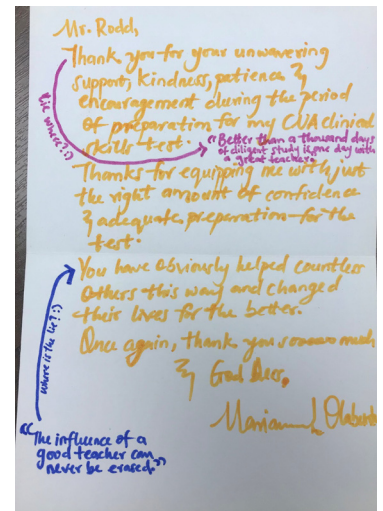 Mr. Rodd,
Thank you for your unwavering
support, kindness, patience &
encouragement during the period
of preparation for my CNA clinical
skills test.
"Better than a thousand days
of diligent study is one day with
a great teacher."
Thanks for equipping me with just
the right amount of confidence
& adequate preparation for the
test.
You have obviously helped countless
others this way and changed
their lives for the better.
Once again, thank you soooooo much
& God bless,
where is the lie? :)
"The influence of a
good teacher can
never be erased."